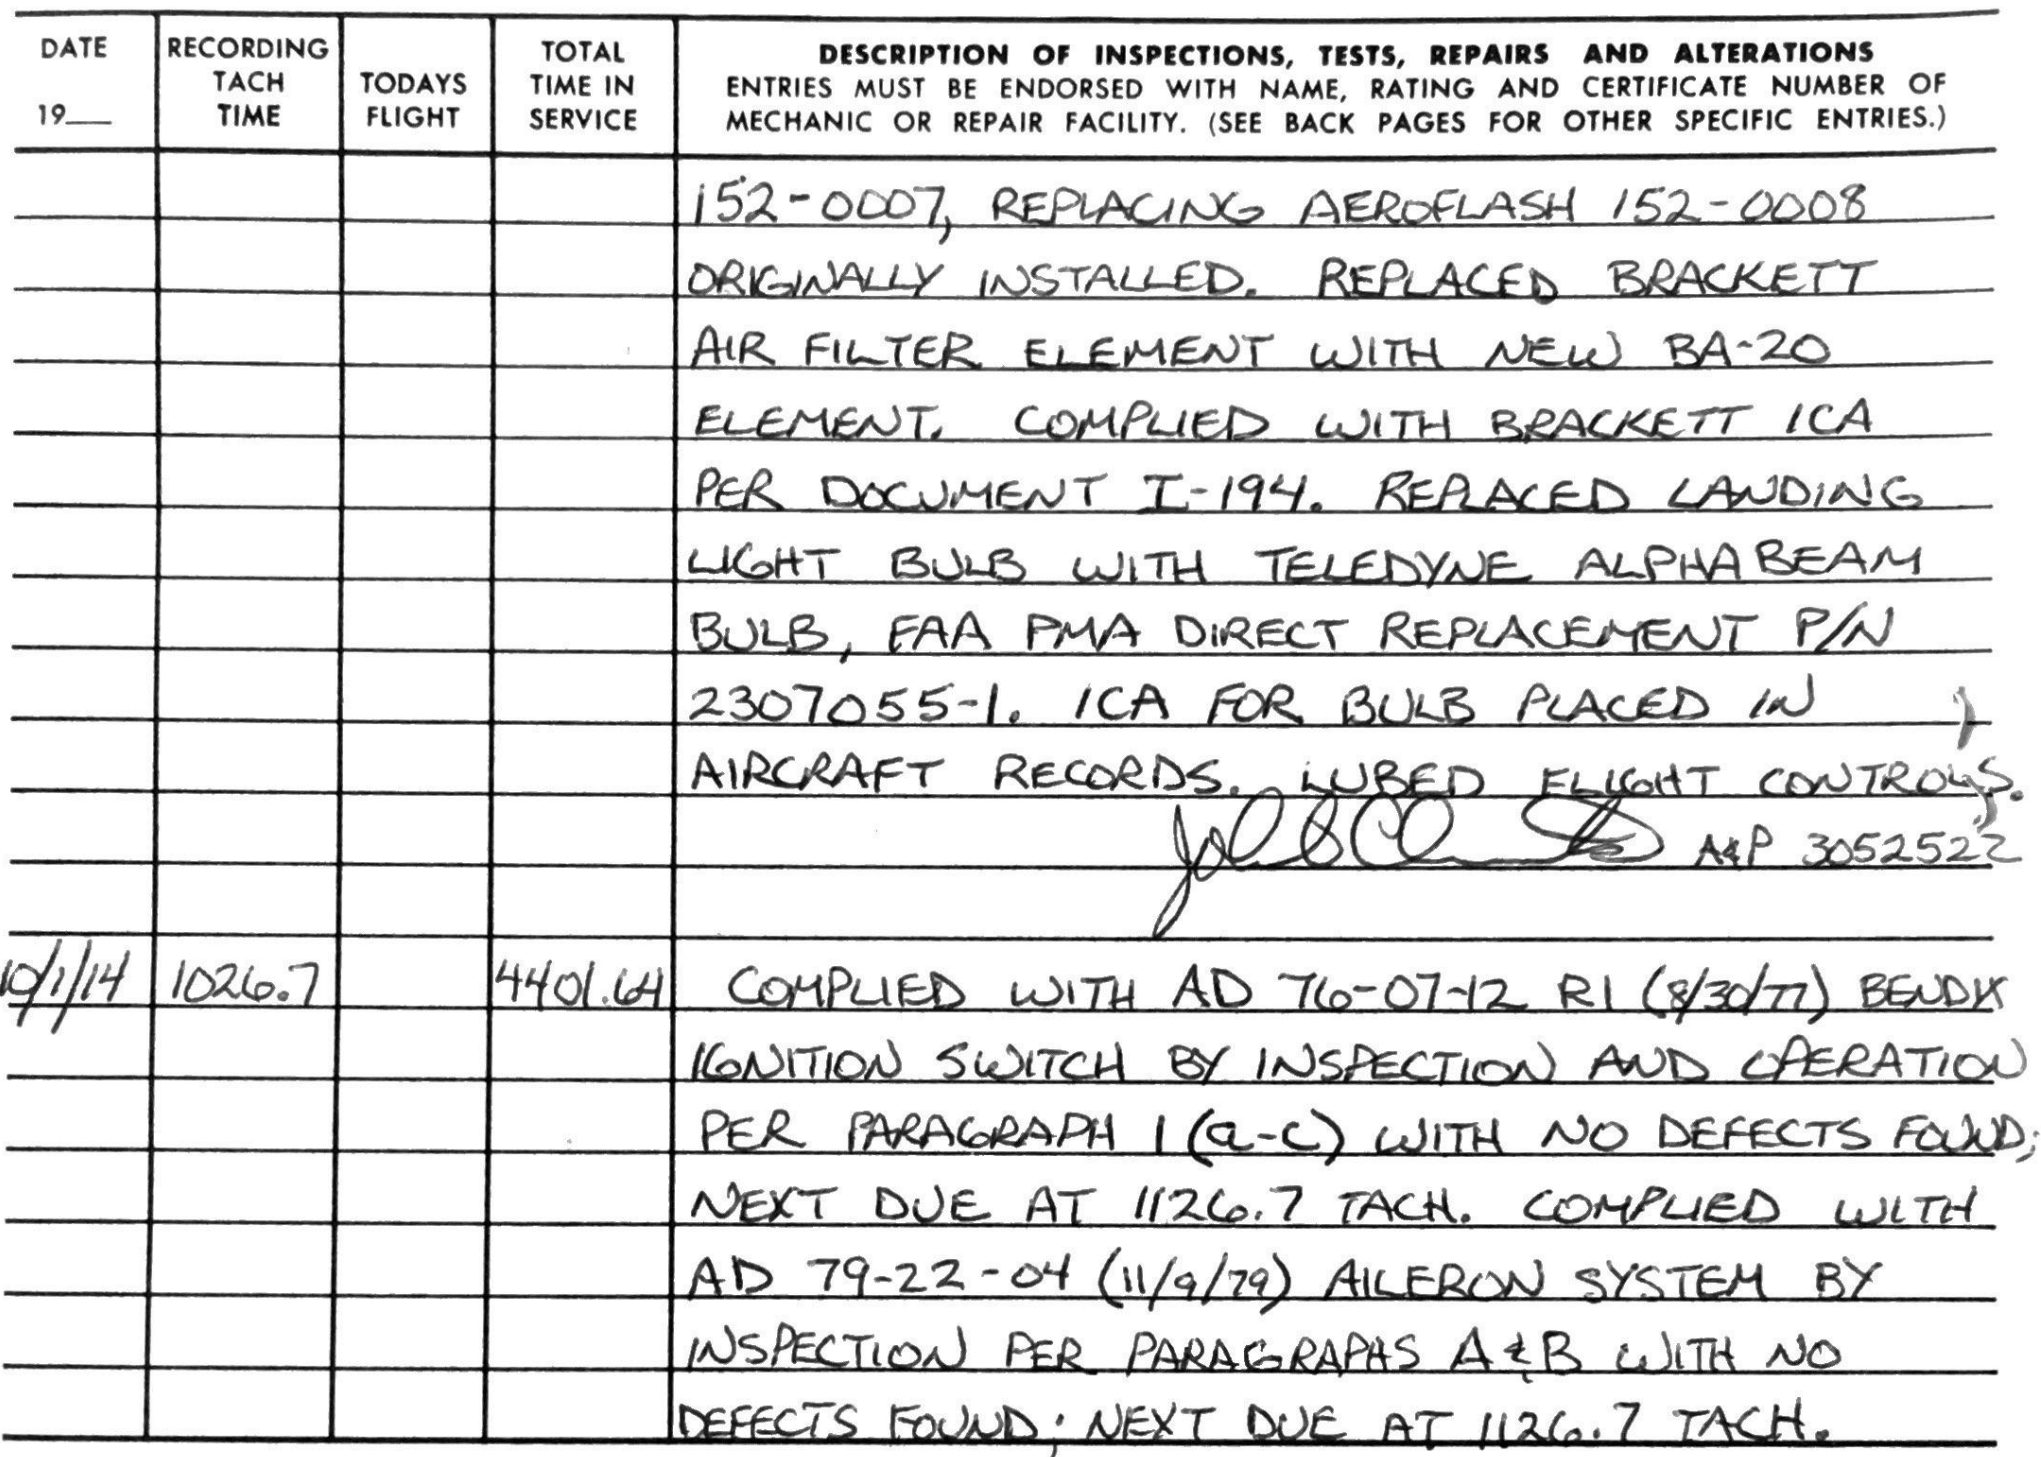 DATE
19__
RECORDING
TACH
TIME
TODAYS
FLIGHT
TOTAL
TIME IN
SERVICE
DESCRIPTION OF INSPECTIONS, TESTS, REPAIRS AND ALTERATIONS
ENTRIES MUST BE ENDORSED WITH NAME, RATING AND CERTIFICATE NUMBER OF
MECHANIC OR REPAIR FACILITY. (SEE BACK PAGES FOR OTHER SPECIFIC ENTRIES.)
152-0007, REPLACING AEROFLASH 152-0008
ORIGINALLY INSTALLED. REPLACED BRACKETT
AIR FILTER ELEMENT WITH NEW BA-20
ELEMENT. COMPLIED WITH BRACKETT ICA
PER DOCUMENT I-194. REPLACED LANDING
LIGHT BULB WITH TELEDYNE ALPHABEAM
BULB, FAA PMA DIRECT REPLACEMENT P/N
2307055-1. ICA FOR BULB PLACED IN
AIRCRAFT RECORDS. LUBED FLIGHT CONTROLS.
A&P 3052522
10/1/14 1026.7 4401.64 COMPLIED WITH AD 76-07-12 R1 (8/30/77) BENDIX
IGNITION SWITCH BY INSPECTION AND OPERATION
PER PARAGRAPH 1 (a-c) WITH NO DEFECTS FOUND;
NEXT DUE AT 1126.7 TACH. COMPLIED WITH
AD 79-22-04 (11/9/79) AILERON SYSTEM BY
INSPECTION PER PARAGRAPHS A & B WITH NO
DEFECTS FOUND; NEXT DUE AT 1126.7 TACH.